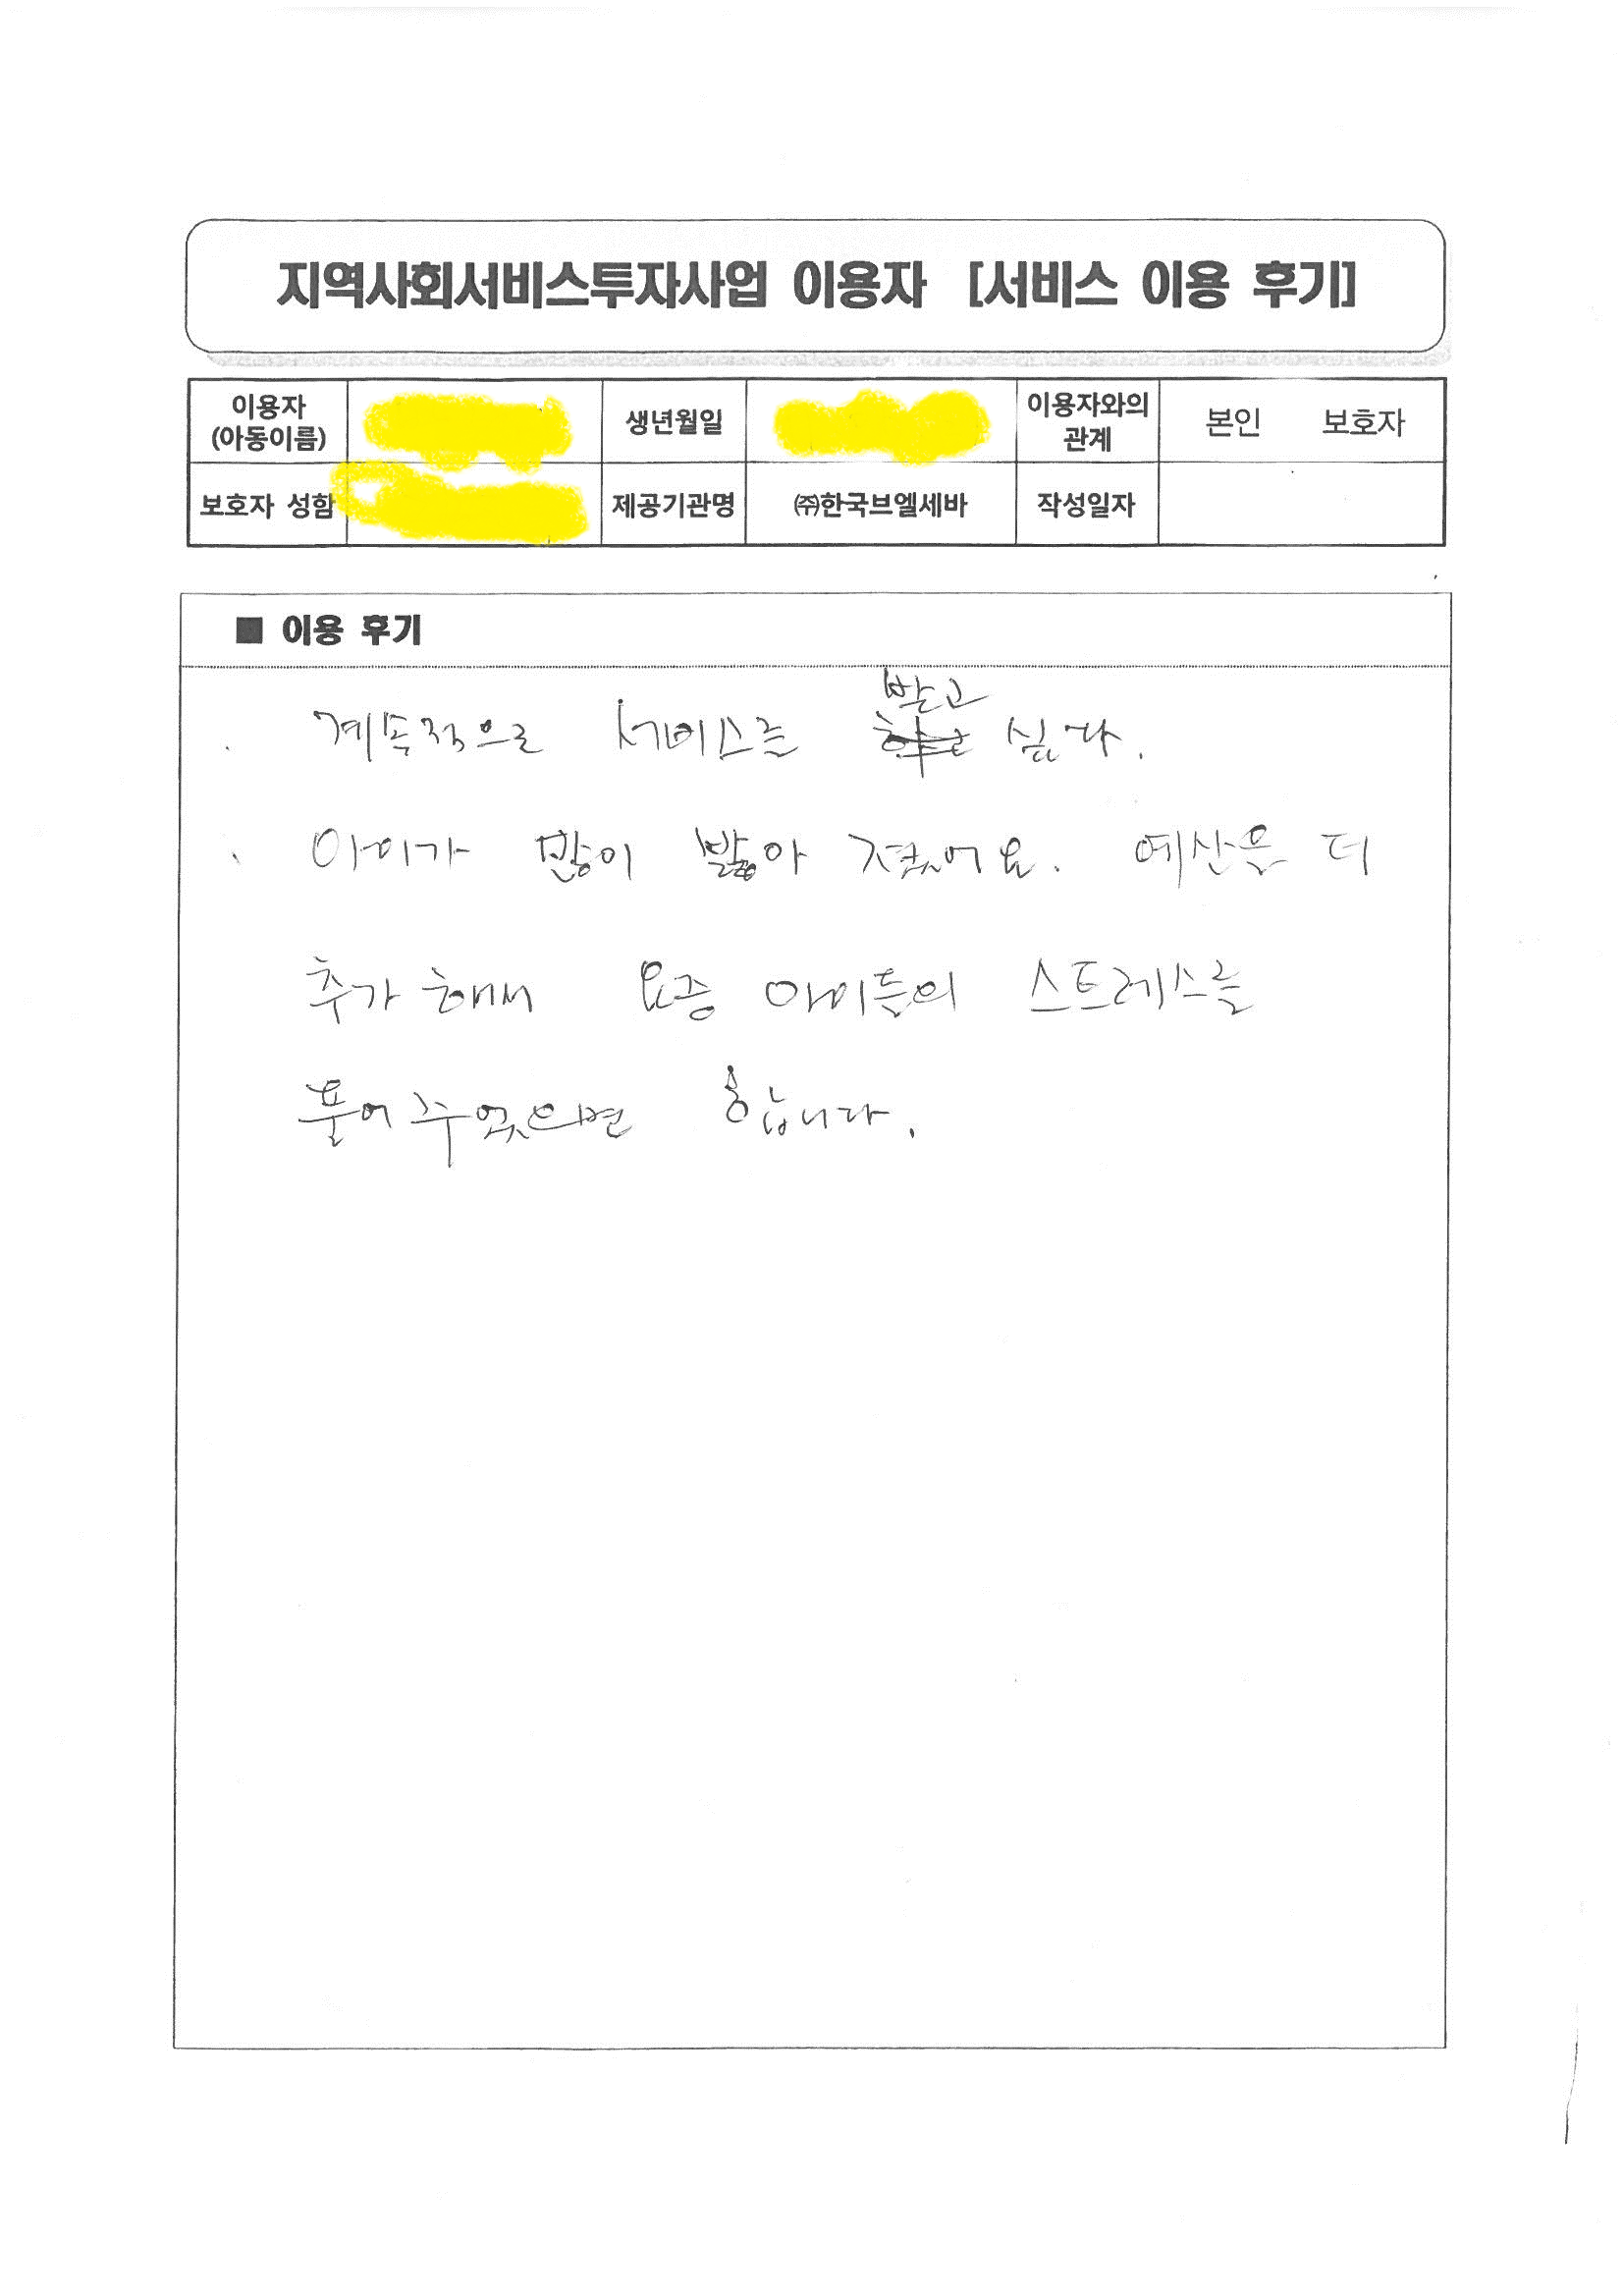 지역사회서비스투자사업 이용자 [서비스 이용 후기]
이용자 (아동이름) 생년월일 이용자와의 관계 본인 보호자
보호자 성함 제공기관명 ㈜한국브엘세바 작성일자
■ 이용 후기
· 계속적으로 서비스를 받고 싶다.
· 아이가 많이 밝아 졌어요. 예산을 더
추가 해서 요즘 아이들의 스트레스를
풀어 주었으면 합니다.